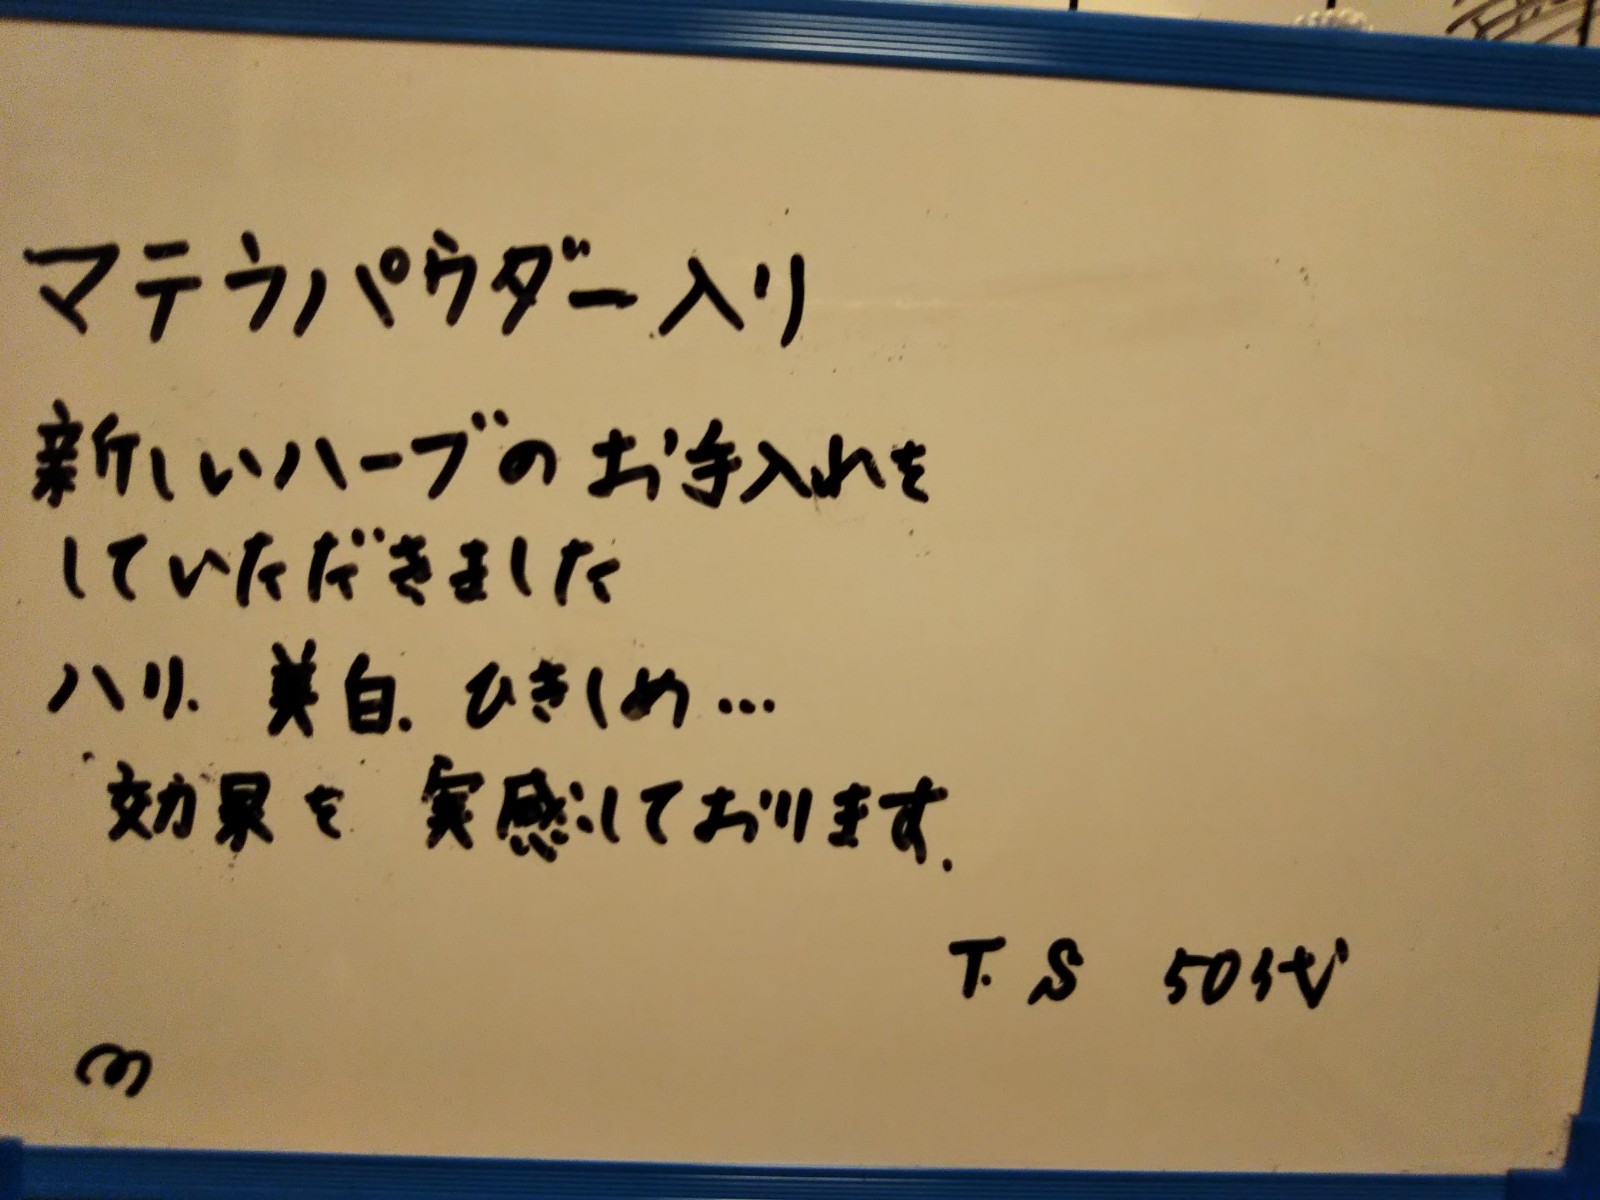 マテラパウダー入り
新しいハーブのお手入れを
していただきました
ハリ. 美白. ひきしめ…
効果を 実感しております.
T. S 50代